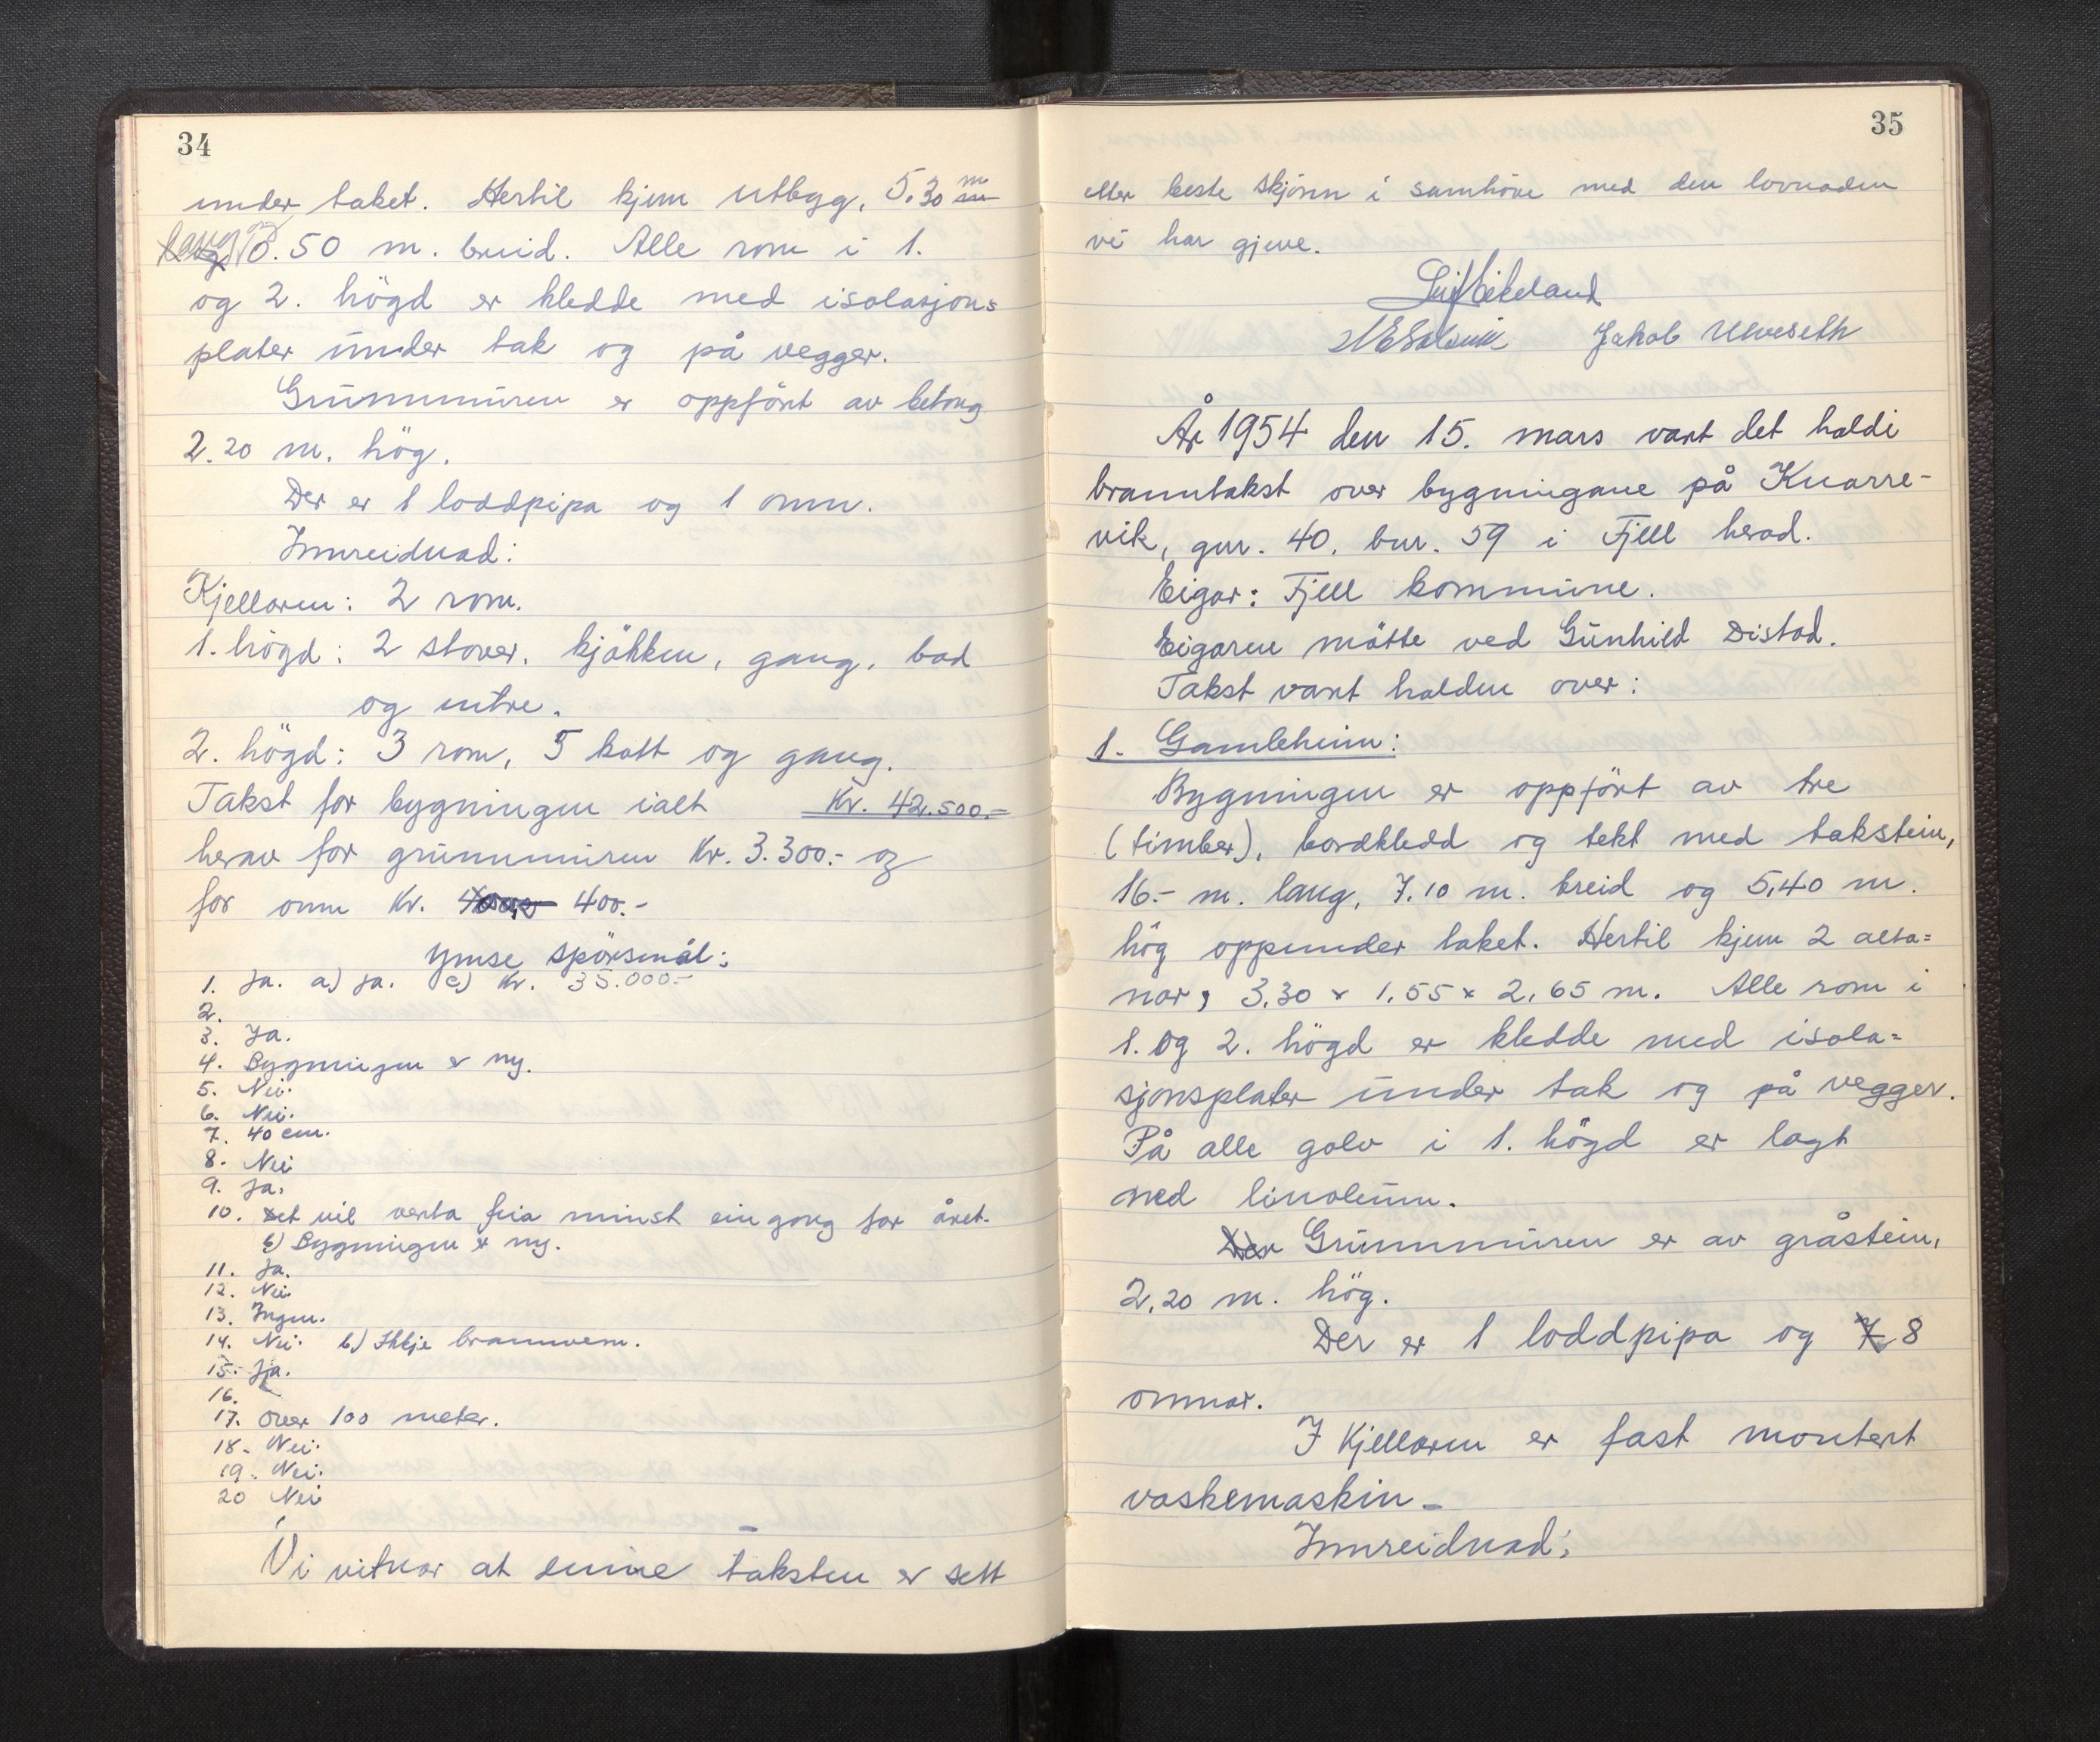 34
under taket. Hertil kjem utbygg, 5.30 m
lang og 0.50 m. breid. Alle rom i 1.
og 2. högd er kledde med isolasjons
plater under tak og på vegger.
Grunnmuren er oppfört av betong
2.20 m. hög.
Der er 1 loddpipa og 1 omn.
Innreidnad:
Kjellaren: 2 rom.
1. högd: 2 stover, kjökken, gang, bad
og entre.
2. högd: 3 rom, 5 kott og gang.
Takst for bygningen ialt Kr. 42.500.-
herav for grunnmuren Kr. 3.300.- og
for omn Kr. 400.-
Ymse spörsmål:
1. Ja. a) Ja. c) Kr. 35.000.-
2.
3. Ja.
4. Bygningen er ny.
5. Nei.
6. Nei.
7. 40 cm.
8. Nei
9. Ja.
10. Det vil verta feia minst ein gong for året.
b) Bygningen er ny.
11. Ja.
12. Nei.
13. Ingen.
14. Nei. b) Ikkje brannvern.
15. Ja.
16.
17. Over 100 meter.
18. Nei.
19. Nei.
20 Nei
Vi vitnar at denne taksten er sett
35
etter beste skjönn i samhöve med den lovnaden
vi har gjeve.
Jakob Ulveseth
År 1954 den 15. mars vart det haldi
branntakst over bygningane på Knarre-
vik, gnr. 40, bnr. 59 i Fjell herad.
Eigar: Fjell kommune.
Eigaren mötte ved Gunhild Distad.
Takst vart halden over:
1. Gamleheim:
Bygningen er oppfört av tre
(timber), bordkledd og tekt med takstein,
16.- m. lang, 7.10 m. breid og 5,40 m.
hög oppunder taket. Hertil kjem 2 alta=
nar, 3,30 x 1,55 x 2,65 m. Alle rom i
1. og 2. högd er kledde med isola=
sjonsplater under tak og på vegger.
På alle golv i 1. högd er lagt
ned linoleum.
Der Grunnmuren er av gråstein,
2,20 m. hög.
Der er 1 loddpipa og 7 8
omnar.
I Kjellaren er fast montert
vaskemaskin -
Innreidnad: